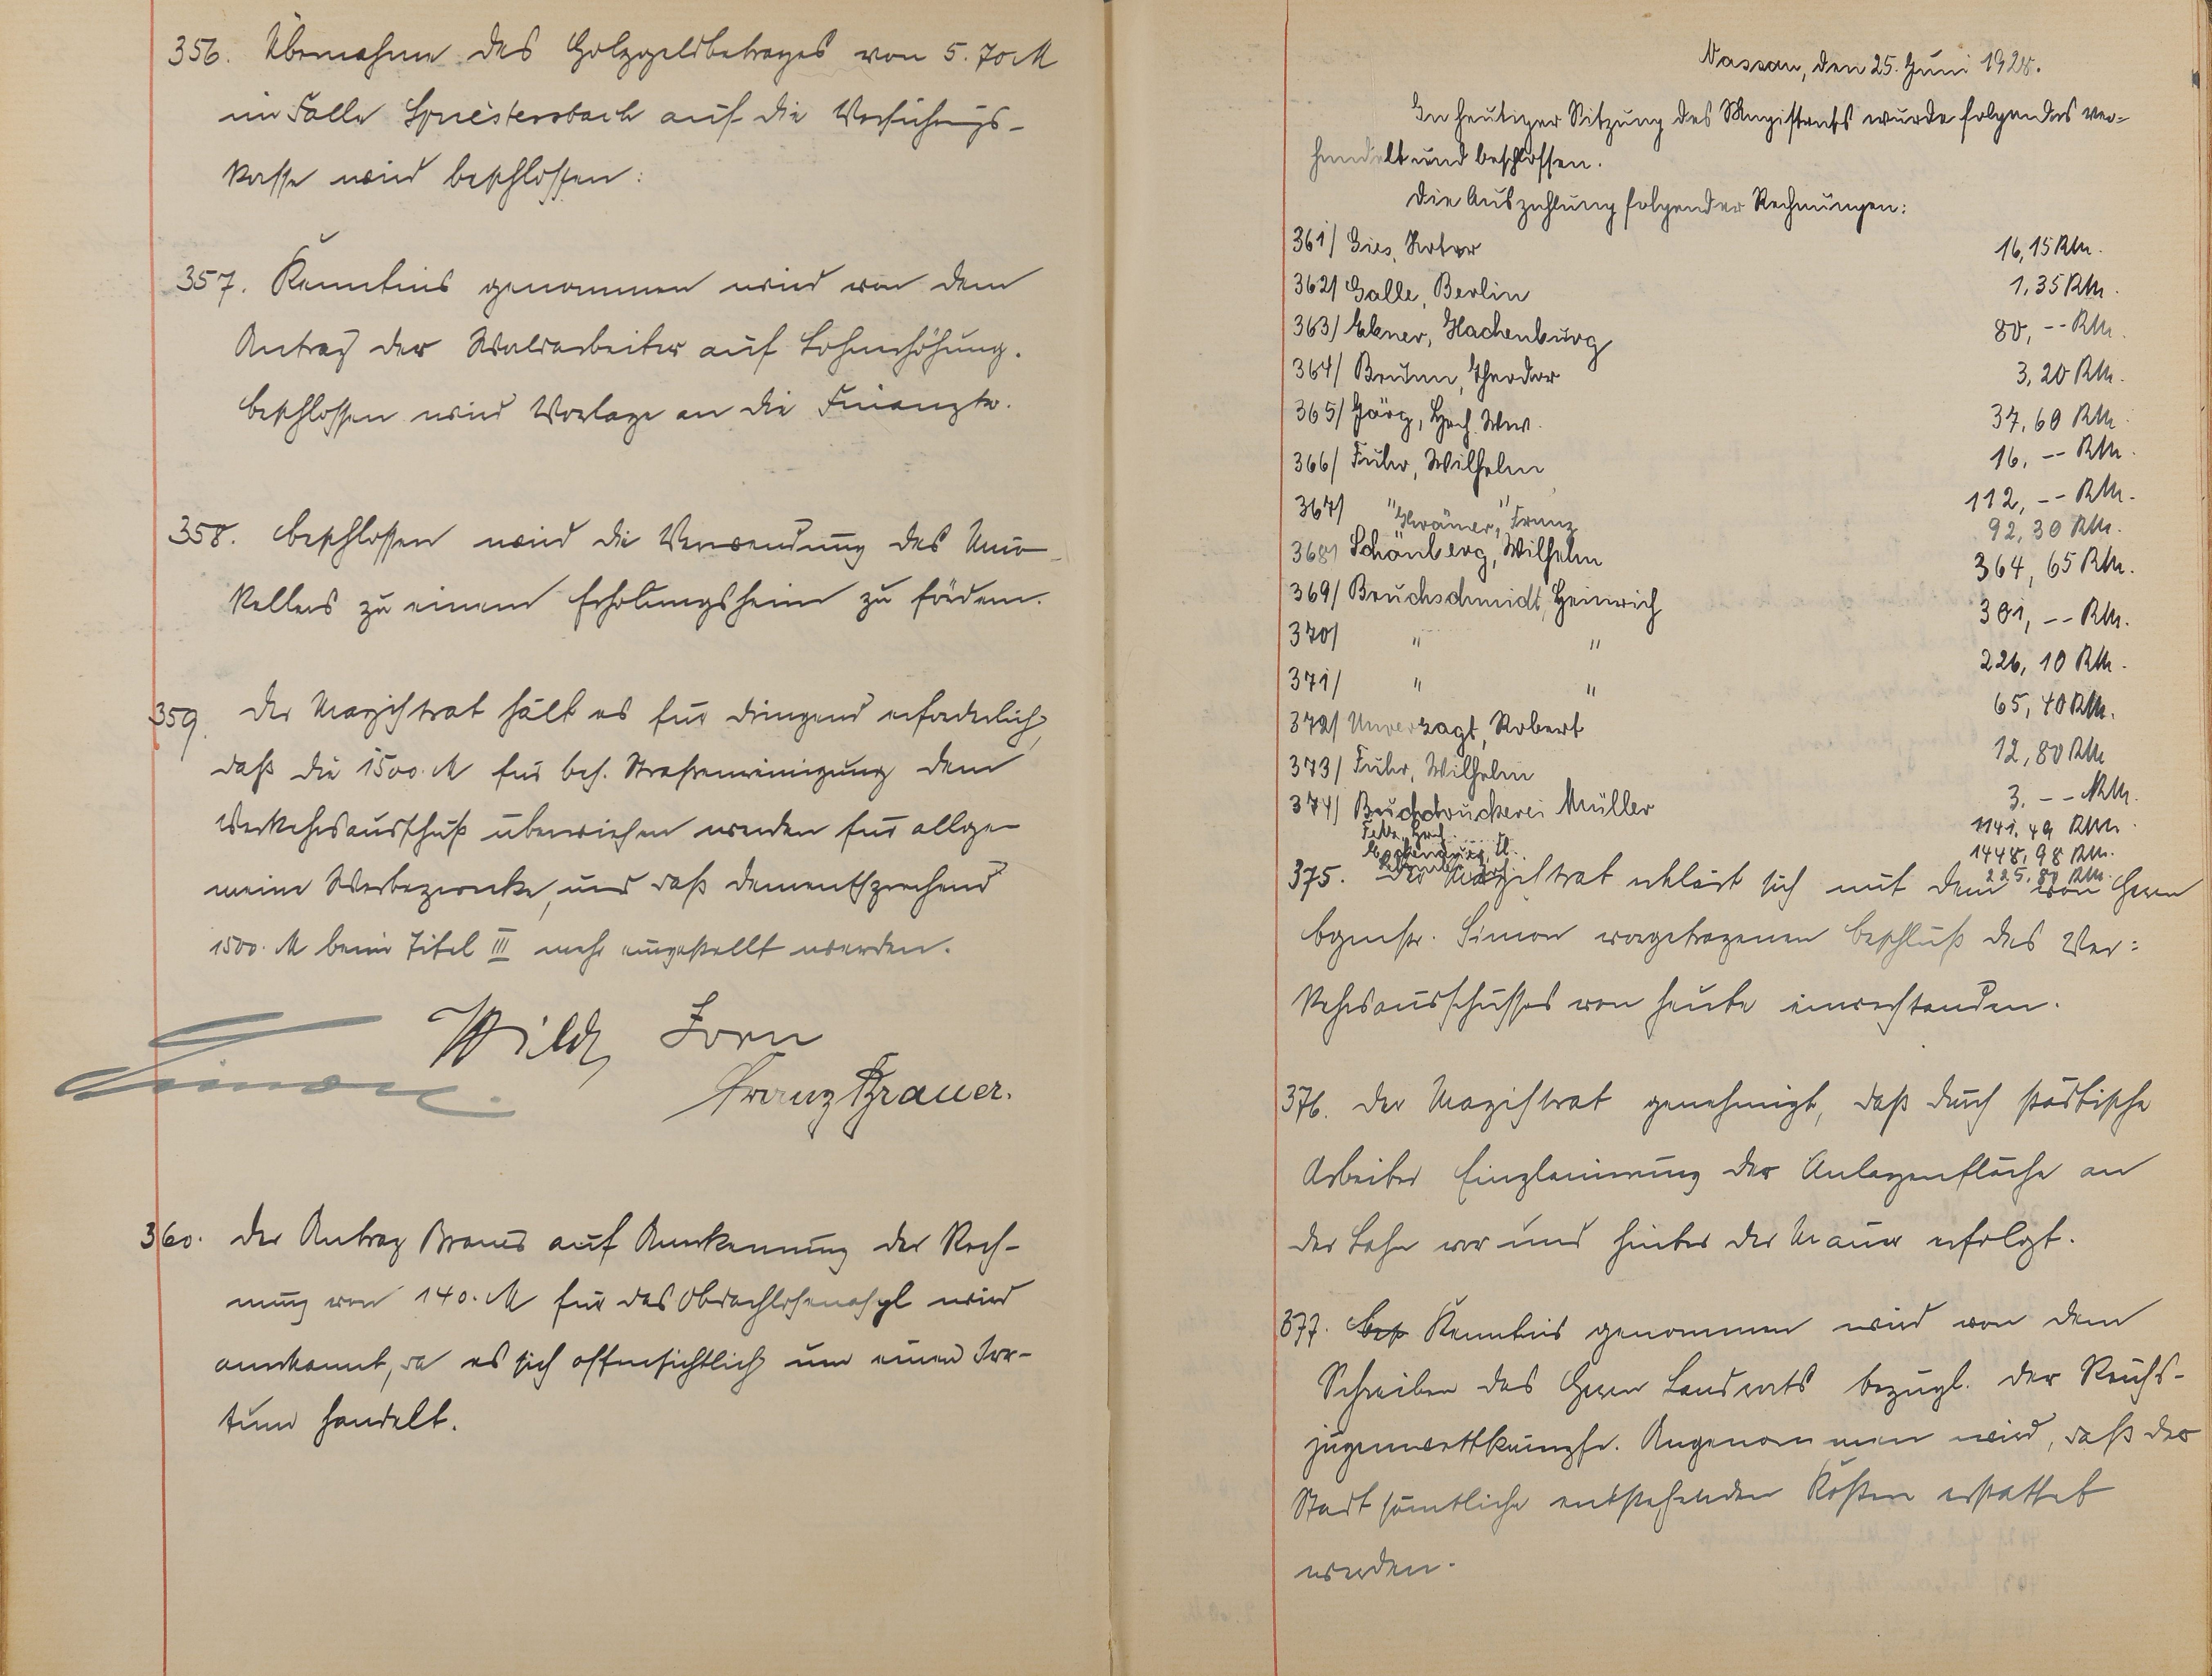 356. Übernahme des Holzgeldbetrages von 5.70 M
im Falle auf die Versicherungs-
kasse wird beschlossen:
357. Kenntnis genommen wird von dem
Antrag der Waldarbeiter auf Lohnerhöhung.
beschlossen wird Vorlage an die Finanzko.
358. beschlossen wird die Verwendung des
Kellers zu einem Erholungsheim zu fördern.
359. Der Magistrat hält es für dringend erforderlich,
daß die 1500. M für bes. Straßenreinigung dem
Verkehrsausschuß überwiesen werden für allge-
meine Werbezwecke, und daß dementsprechend
1500. M beim Titel III mehr eingestellt werden.
Wild Zorn
Simon.
Franz Brauer.
360. Der Antrag Brauer auf Anerkennung der Rech-
nung von 140. M für das Obdachlosenasyl wird
anerkannt, da es sich offensichtlich um einen Irr-
tum handelt.
Nassau, den 25. Juni 1928.
In heutiger Sitzung des Magistrats wurde folgendes ver-
handelt und beschlossen.
Die Auszahlung folgender Rechnungen:
361/ Gies, 16,15 RM.
362/ Galle, Berlin 1,35 RM.
363/ Ebner, Hachenburg 80,-- RM.
364/ Bruhn, Theodor 3,20 RM.
365/ Görg, Hch. Wwe. 37,60 RM.
366/ Fuhr, Wilhelm 16,-- RM.
367/ " " 112,-- RM.
Franz 92,30 RM.
368/ Schönberg, Wilhelm 364,65 RM.
369/ Bruchschmidt, Heinrich 301,-- RM.
370/ " " 226,10 RM.
371/ " " 65,40 RM.
372/ Unverzagt, Robert 12,80 RM
373/ Fuhr, Wilhelm 3.-- RM.
374/ Buchdruckerei Müller 1141,49 RM.
1448,98 RM.
225,80 RM.
375. Der Magistrat erklärt sich mit dem von Herrn
Bgmstr. Simon vorgetragenen Beschluß des Ver:
kehrsausschusses von heute einverstanden.
376. Der Magistrat genehmigt, daß durch städtische
Arbeiter Einplanierung der Anlagenfläche an
der Lahn vor und hinter der Mauer erfolgt.
377. Bes Kenntnis genommen wird von dem
Schreiben des Herrn Landrats bezügl. der Reichs-
jugendwettkämpfe. Angenommen wird, daß der
Stadt sämtliche entstehenden Kosten erstattet
werden.